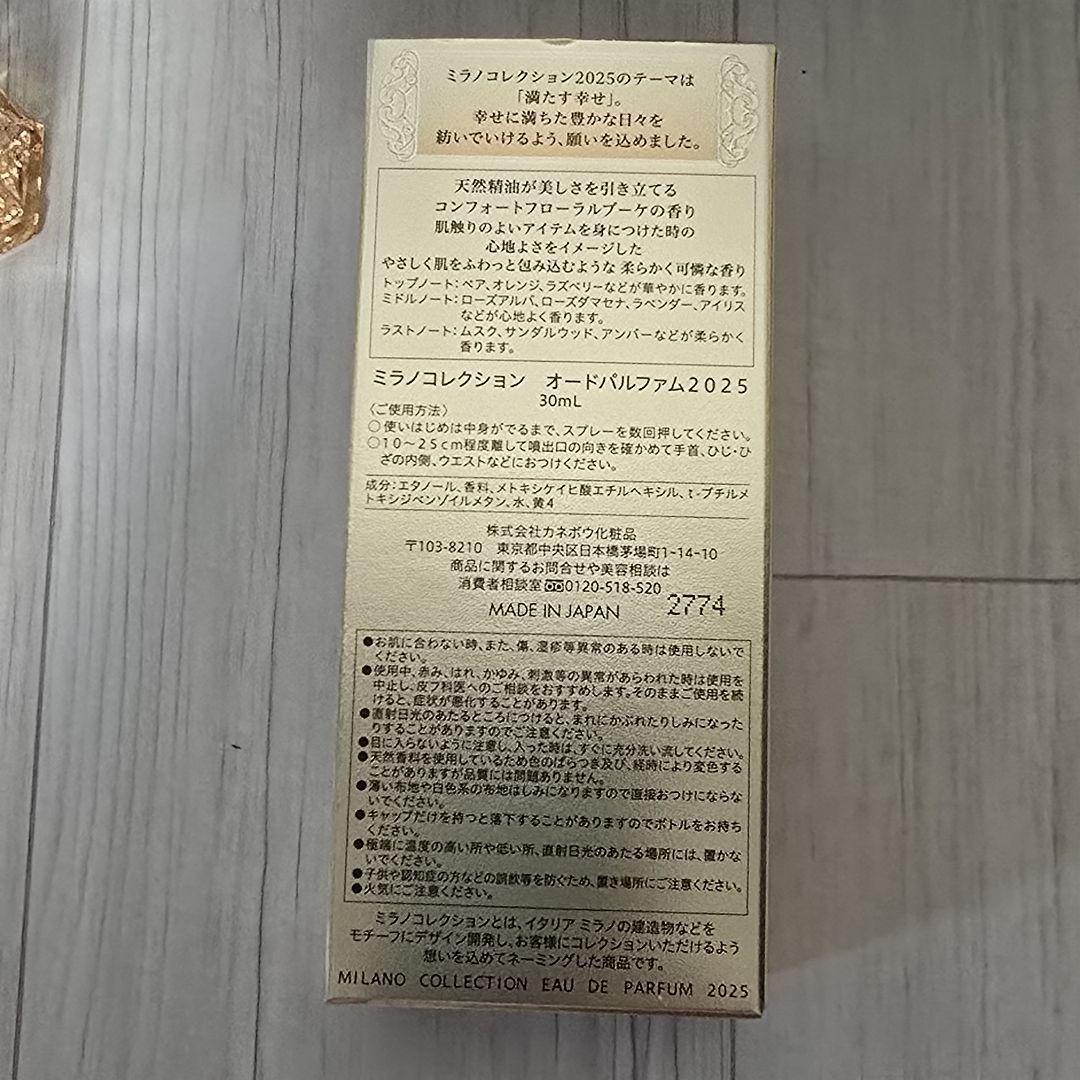 ミラノコレクション2025のテーマは
「満たす幸せ」。
幸せに満ちた豊かな日々を
紡いでいけるよう、願いを込めました。
天然精油が美しさを引き立てる
コンフォートフローラルブーケの香り
肌触りのよいアイテムを身につけた時の
心地よさをイメージした
やさしく肌をふわっと包み込むような 柔らかく可憐な香り
トップノート：ペア、オレンジ、ラズベリーなどが華やかに香ります。
ミドルノート：ローズアルバ、ローズダマセナ、ラベンダー、アイリス
などが心地よく香ります。
ラストノート：ムスク、サンダルウッド、アンバーなどが柔らかく
香ります。
ミラノコレクション　オードパルファム2025
30mL
〈ご使用方法〉
○使いはじめは中身がでるまで、スプレーを数回押してください。
○10～25cm程度離して噴出口の向きを確かめて手首、ひじ・ひ
ざの内側、ウエストなどにおつけください。
成分：エタノール、香料、メトキシケイヒ酸エチルヘキシル、t-ブチルメ
トキシジベンゾイルメタン、水、黄4
株式会社カネボウ化粧品
〒103-8210　東京都中央区日本橋茅場町1-14-10
商品に関するお問合せや美容相談は
消費者相談室 0120-518-520
MADE IN JAPAN 2774
●お肌に合わない時、また、傷、湿疹等異常のある時は使用しないで
ください。
●使用中、赤み、はれ、かゆみ、刺激等の異常があらわれた時は使用を
中止し、皮フ科医へのご相談をおすすめします。そのままご使用を続
けると、症状が悪化することがあります。
●直射日光のあたるところにつけると、まれにかぶれたりしみになった
りすることがありますのでご注意ください。
●目に入らないように注意し、入った時は、すぐに充分洗い流してください。
●天然香料を使用しているため色のばらつき及び、経時により変色する
ことがありますが品質には問題ありません。
●薄い布地や白色系の布地はしみになりますので直接おつけにならな
いでください。
●キャップだけを持つと落下することがありますのでボトルをお持ち
ください。
●極端に温度の高い所や低い所、直射日光のあたる場所には、置かな
いでください。
●子供や認知症の方などの誤飲等を防ぐため、置き場所にご注意ください。
●火気にご注意ください。
ミラノコレクションとは、イタリア ミラノの建造物などを
モチーフにデザイン開発し、お客様にコレクションいただけるよう
想いを込めてネーミングした商品です。
MILANO COLLECTION EAU DE PARFUM 2025